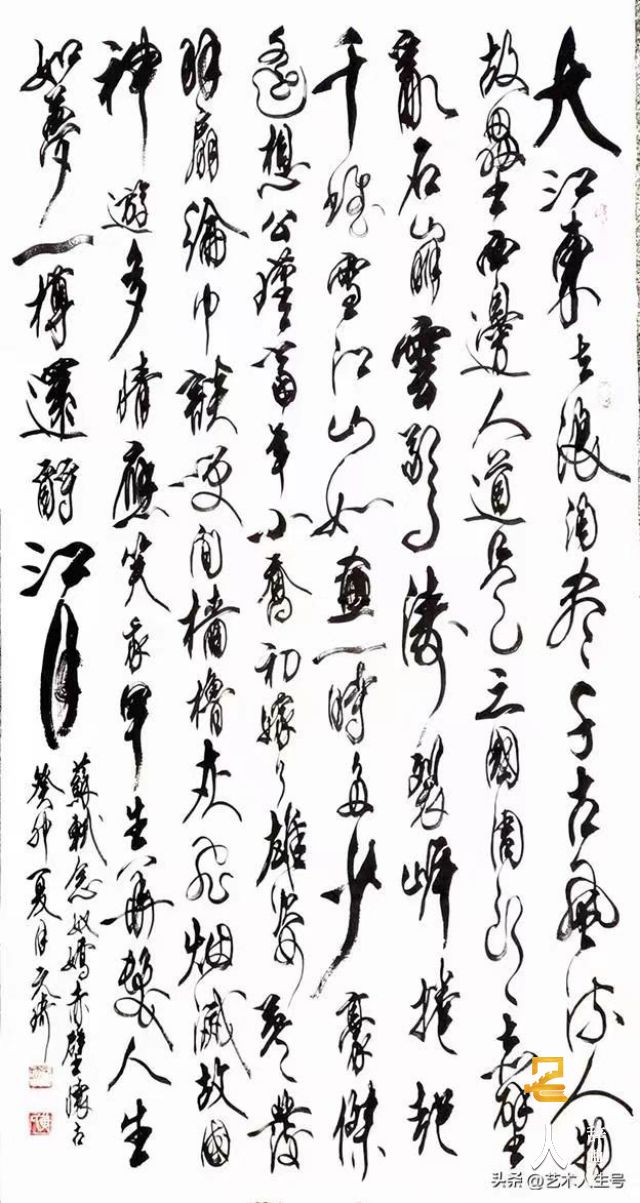 大江東去浪淘盡千古風流人物
故壘西邊人道是三國周郎赤壁
亂石崩雲驚濤裂岸捲起
千堆雪江山如畫一時多少豪傑
遙想公瑾當年小喬初嫁了雄姿英發
羽扇綸巾談笑間檣櫓灰飛烟滅故國
神遊多情應笑我早生華髮人生
如夢一樽還酹江月
蘇軾念奴嬌赤壁懷古
癸卯夏月
头条@艺术人生号